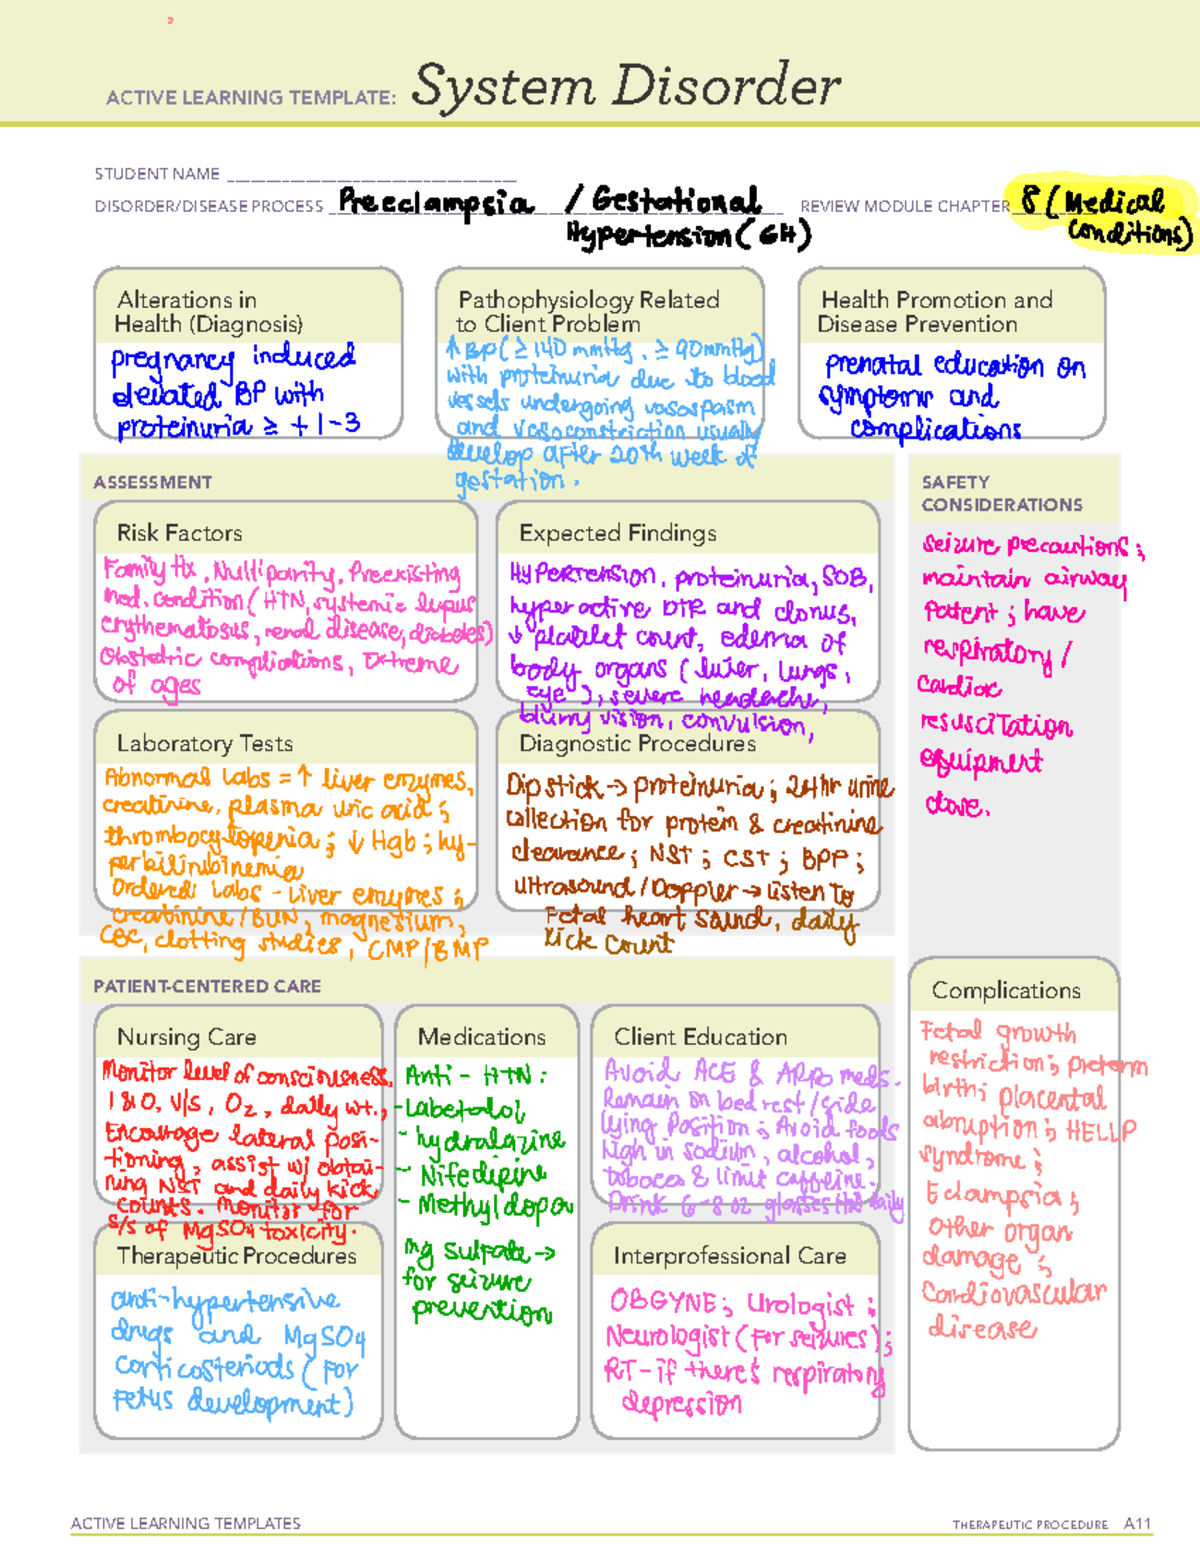 ACTIVE LEARNING TEMPLATE: System Disorder
STUDENT NAME
DISORDER/DISEASE PROCESS Preeclampsia / Gestational
Hypertension (GH)
REVIEW MODULE CHAPTER 8 (Medical
conditions)
Alterations in
Health (Diagnosis)
pregnancy induced
elevated BP with
proteinuria ≥ +1-3
Pathophysiology Related
to Client Problem
↑ BP (≥ 140 mmHg, ≥ 90mmHg)
with proteinuria due to blood
vessels undergoing vasospasm
and vasoconstriction usually
develop after 20th week of
gestation.
Health Promotion and
Disease Prevention
prenatal education on
symptoms and
complications
ASSESSMENT
Risk Factors
Family Hx, Nulliparity, Preexisting
med. condition (HTN, systemic lupus
erythematosus, renal disease, diabetes)
Obstetric complications, Extreme
of ages
Expected Findings
Hypertension, proteinuria, SOB,
hyperactive DTR and clonus,
↓ platelet count, edema of
body organs (liver, lungs,
eye), severe headache,
blurry vision, convulsion,
Laboratory Tests
Abnormal Labs = ↑ liver enzymes,
creatinine, plasma uric acid;
thrombocytopenia; ↓ Hgb; hy-
perbilirubinemia
Ordered Labs - Liver enzymes;
creatinine/BUN, magnesium,
CBC, clotting studies, CMP/BMP
Diagnostic Procedures
Dipstick → proteinuria; 24hr urine
collection for protein & creatinine
clearance; NST; CST; BPP;
ultrasound/Doppler → Listen to
Fetal heart sound, daily
kick count
SAFETY
CONSIDERATIONS
seizure precautions;
maintain airway
patent; have
respiratory/
cardiac
resuscitation
equipment
close.
PATIENT-CENTERED CARE
Nursing Care
Monitor level of consciousness,
I&O, V/S, O2, daily wt.,
Encourage lateral posi-
tioning, assist w/ obtai-
ning NST and daily kick
counts. Monitor for
s/s of MgSO4 toxicity.
Medications
Anti-HTN:
-Labetalol
- hydralazine
- Nifedipine
- Methyldopa
Mg sulfate →
for seizure
prevention
Client Education
Avoid ACE & ARBs meds.
Remain on bedrest/side
lying position; Avoid foods
high in sodium, alcohol,
tobacco & limit caffeine.
Drink 6-8 oz glasses H2O daily
Therapeutic Procedures
anti-hypertensive
drugs and MgSO4
corticosteriods (for
Fetus development)
Interprofessional Care
OBGYNE; Urologist;
Neurologist (for seizures);
RT - if there's respiratory
depression
Complications
Fetal growth
restriction; preterm
birth; placental
abruption; HELLP
syndrome;
Eclampsia;
other organ
damage;
Cardiovascular
disease
ACTIVE LEARNING TEMPLATES
THERAPEUTIC PROCEDURE A11